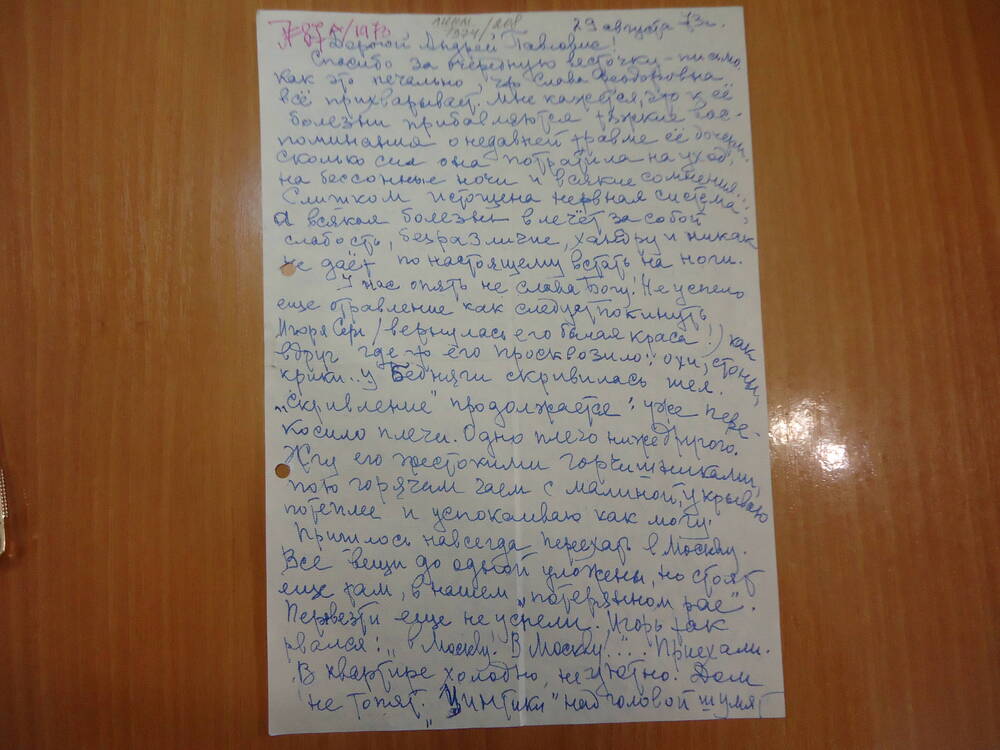 29 августа 73г.
Дорогой Андрей Павлович!
Спасибо за очередную весточку-письмо,
как это печально, что Слава Феодоровна
всё прихварывает. Мне кажется, что к её
болезни прибавляются тяжкие вос-
поминания о недавней травме её дочери.
Сколько сил она потратила на уход,
на бессонные ночи и всякие сомнения...
Слишком истощена нервная система,
а всякая болезнь влечёт за собой
слабость, безразличие, хандру и никак
не даёт по настоящему встать на ноги.
У нас опять не слава Богу! Не успело
еще отравление как следует покинуть
Игоря Сер (вернулась его былая краса!) как
вдруг где-то его просквозило: охи, стоны,
крики... У бедняги скривилась шея.
"Скривление" продолжается: уже пере-
косило плечи. Одно плечо ниже другого.
Жгу его жестокими горчишниками,
пою горячим чаем с малиной, укрываю
потеплее и успокаиваю как могу.
Пришлось навсегда переехать в Москву.
Все вещи до одной уложены, но стоят
еще там, в нашем "потерянном рае".
Перевезти еще не успели. Игорь так
рвался: "в Москву! В Москву!"... Приехали.
В квартире холодно, неуютно. Дом
не топят. "Винтики" над головой шумят